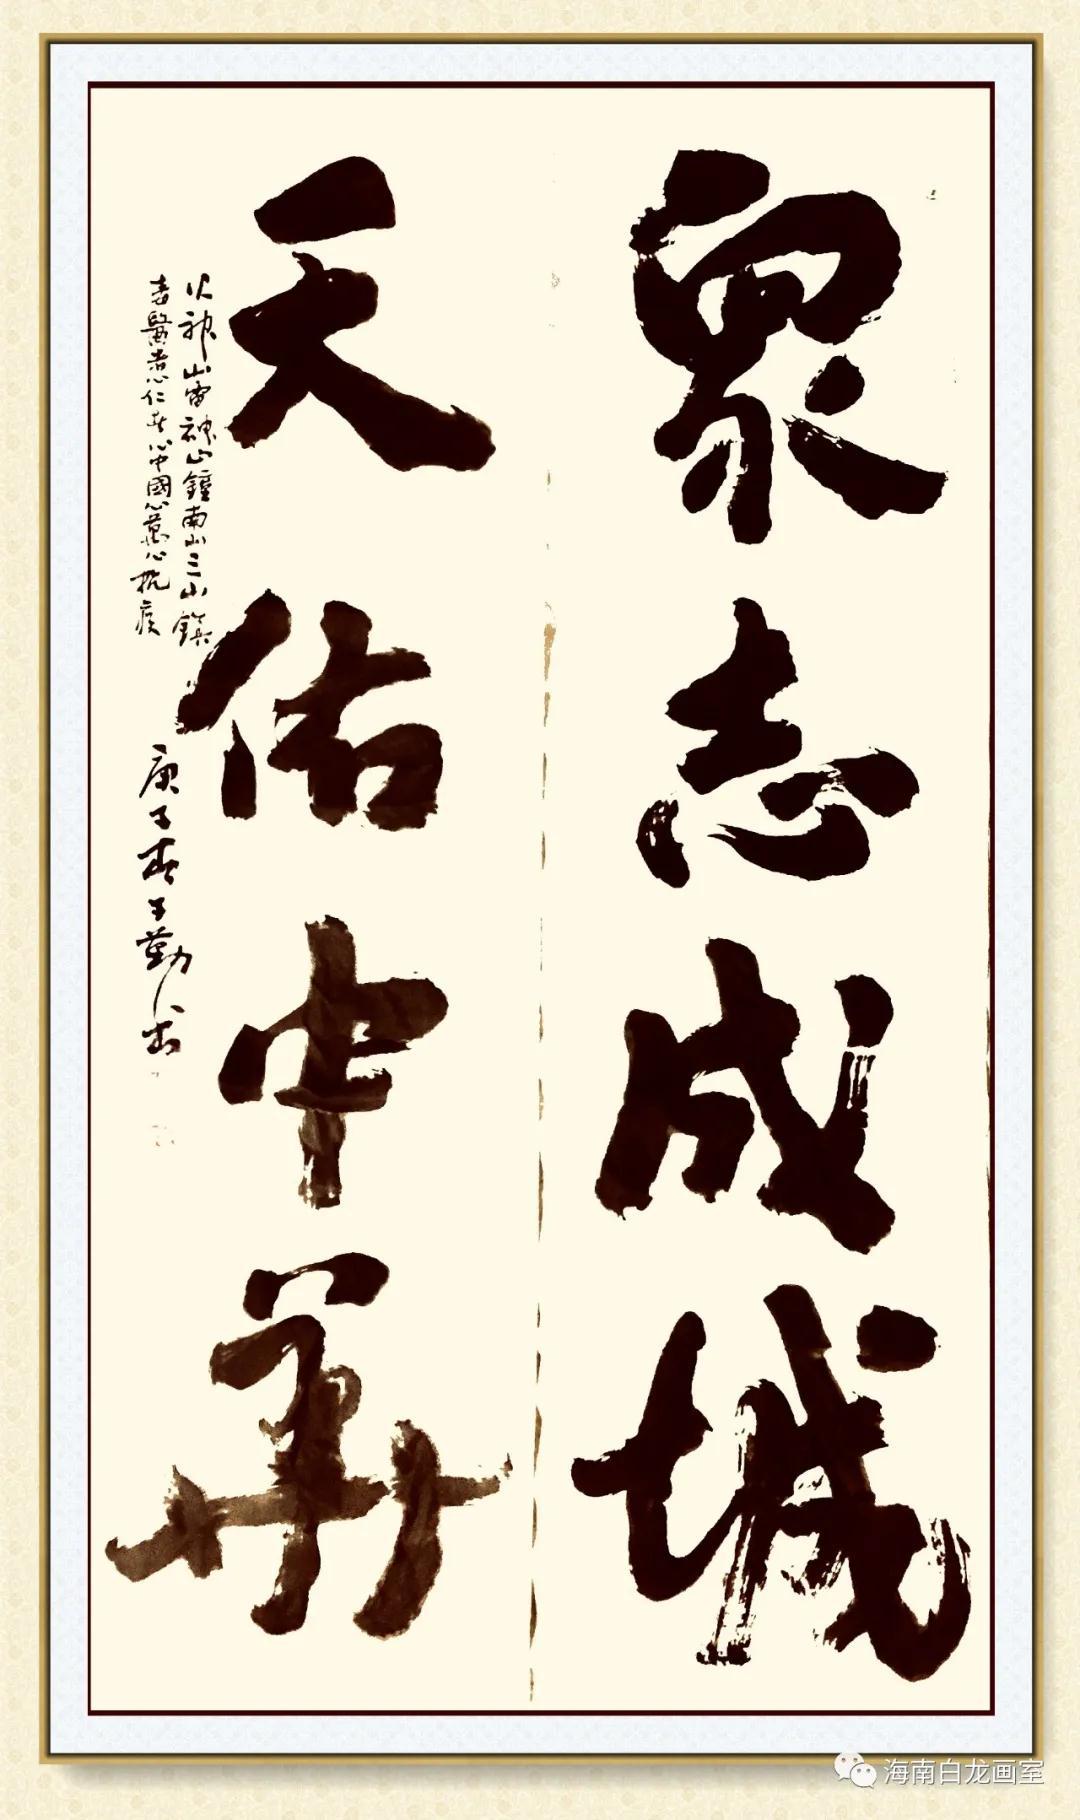 眾志成城
天佑中華
火神山雷神山鐘南山三山鎮
毒醫者心仁者心中國心萬心抗疫
庚子春子勤書
海南白龙画室